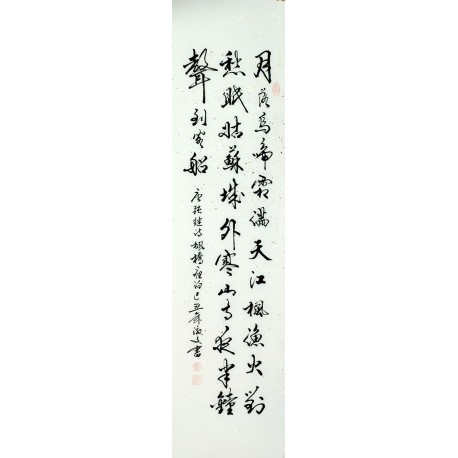 月落烏啼霜滿天江楓漁火對
愁眠姑蘇城外寒山寺夜半鐘
聲到客船
唐張繼詩楓橋夜泊己丑書